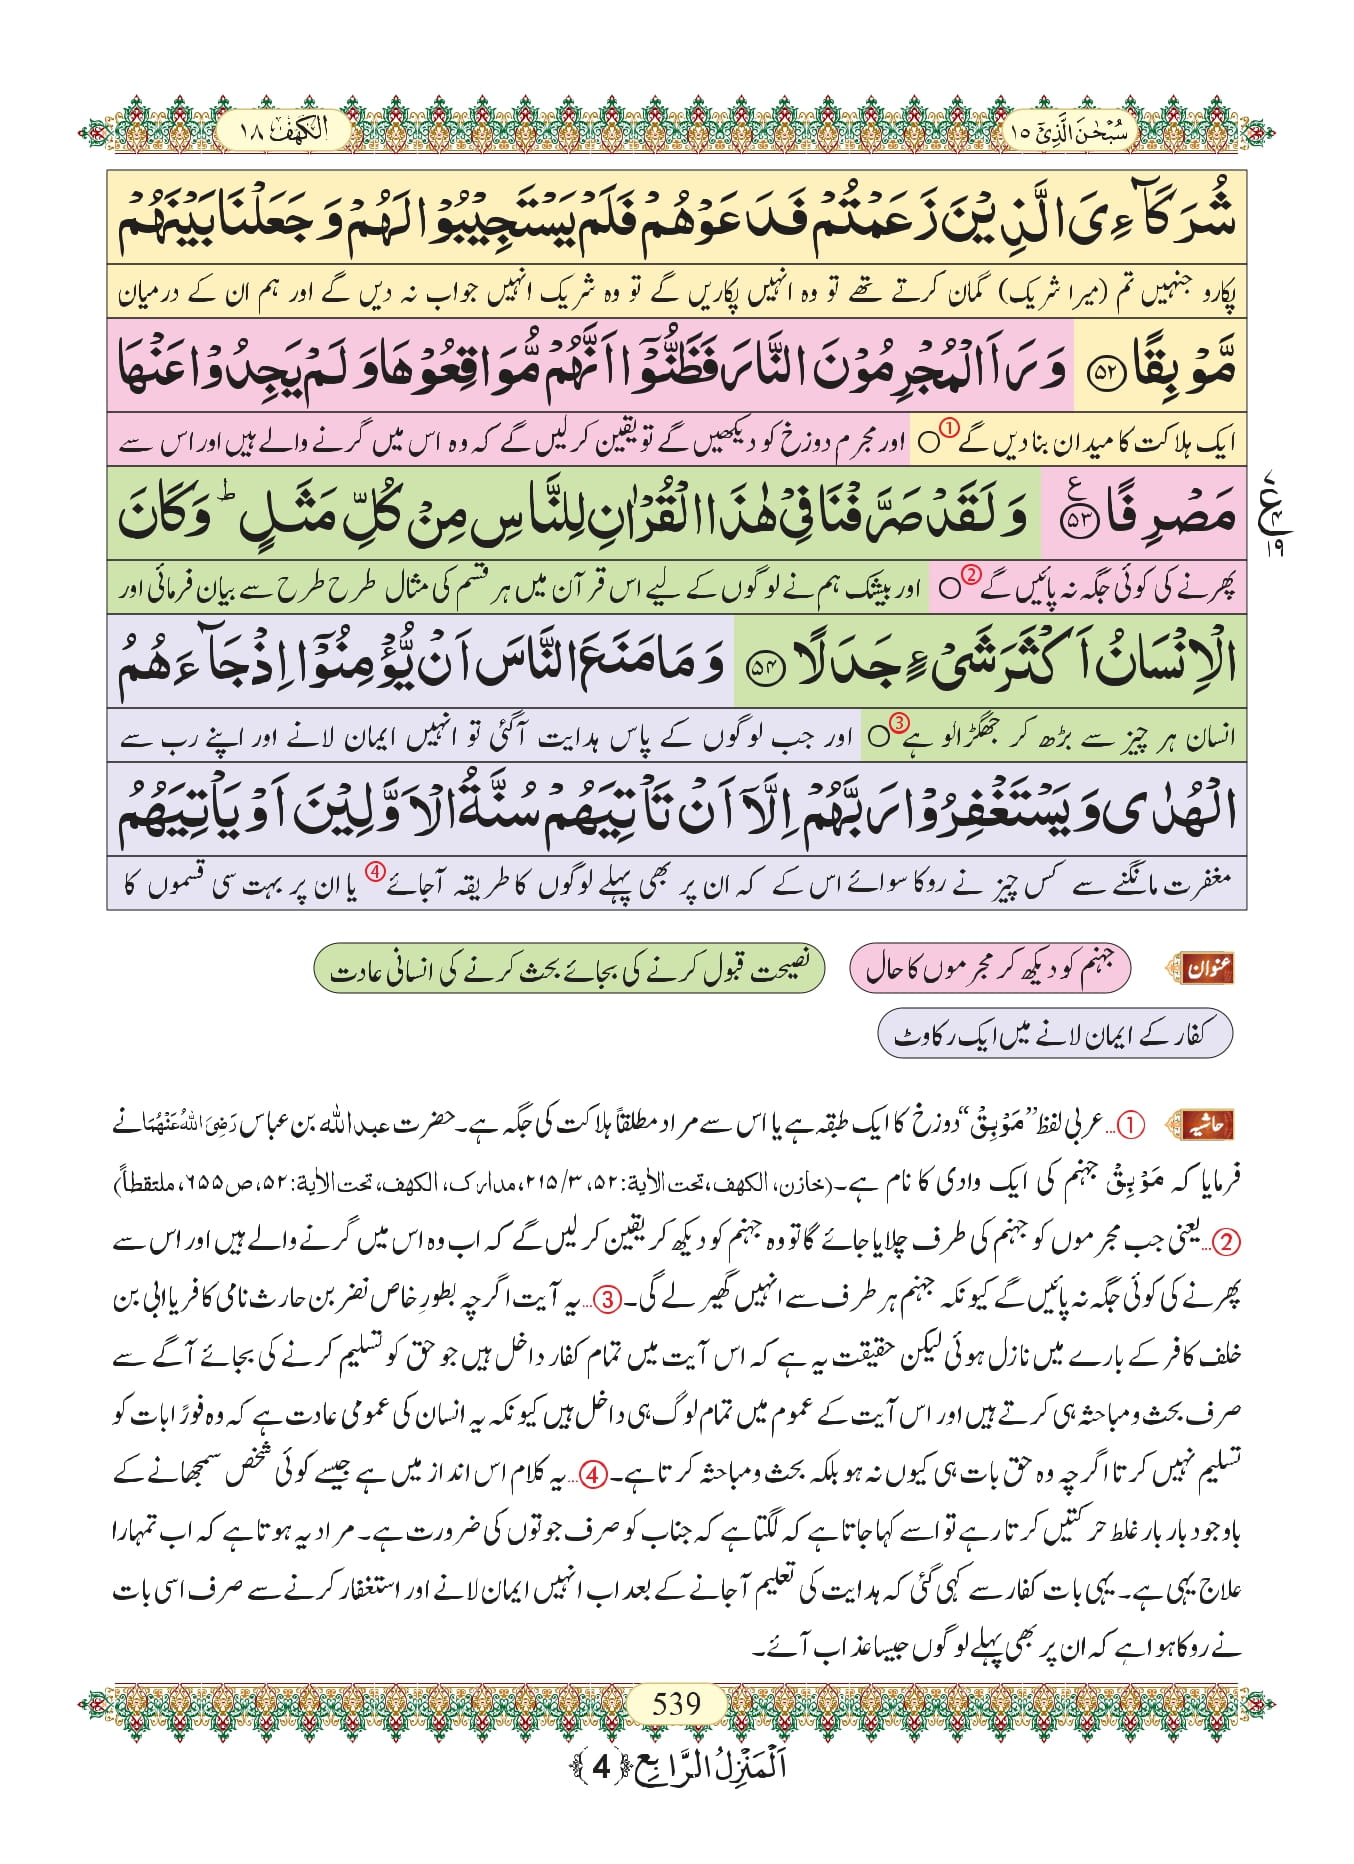 سُبْحٰنَ الَّذِیْٓ ١٥
الْكَهْف ١٨
شُرَكَآءِیَ الَّذِیْنَ زَعَمْتُمْ فَدَعَوْهُمْ فَلَمْ یَسْتَجِیْبُوْا لَهُمْ وَ جَعَلْنَا بَیْنَهُمْ
پکارو جنہیں تم (میرا شریک) گمان کرتے تھے تو وہ انہیں پکاریں گے تو وہ شریک انہیں جواب نہ دیں گے اور ہم ان کے درمیان
مَّوْبِقًا ﴿۵۲﴾ وَ رَاَ الْمُجْرِمُوْنَ النَّارَ فَظَنُّوْۤا اَنَّهُمْ مُّوَاقِعُوْهَا وَ لَمْ یَجِدُوْا عَنْهَا
ایک ہلاکت کا میدان بنا دیں گے① ○ اور مجرم دوزخ کو دیکھیں گے تو یقین کر لیں گے کہ وہ اس میں گرنے والے ہیں اور اس سے
مَصْرِفًا ﴿۵۳﴾ ع وَ لَقَدْ صَرَّفْنَا فِیْ هٰذَا الْقُرْاٰنِ لِلنَّاسِ مِنْ كُلِّ مَثَلٍ ؕ وَ كَانَ
ع ١٩
پھرنے کی کوئی جگہ نہ پائیں گے② ○ اور بیشک ہم نے لوگوں کے لیے اس قرآن میں ہر قسم کی مثال طرح طرح سے بیان فرمائی اور
الْاِنْسَانُ اَكْثَرَ شَیْءٍ جَدَلًا ﴿۵۴﴾ وَ مَا مَنَعَ النَّاسَ اَنْ یُّؤْمِنُوْۤا اِذْ جَآءَهُمُ
انسان ہر چیز سے بڑھ کر جھگڑالو ہے③ ○ اور جب لوگوں کے پاس ہدایت آگئی تو انہیں ایمان لانے اور اپنے رب سے
الْهُدٰی وَ یَسْتَغْفِرُوْا رَبَّهُمْ اِلَّاۤ اَنْ تَاْتِیَهُمْ سُنَّةُ الْاَوَّلِیْنَ اَوْ یَاْتِیَهُمُ
مغفرت مانگنے سے کس چیز نے روکا سوائے اس کے کہ ان پر بھی پہلے لوگوں کا طریقہ آجائے④ یا ان پر بہت سی قسموں کا
عنوان جہنم کو دیکھ کر مجرموں کا حال نصیحت قبول کرنے کی بجائے بحث کرنے کی انسانی عادت
کفار کے ایمان لانے میں ایک رکاوٹ
حاشیہ ①...عربی لفظ ’’مَوْبِقْ‘‘ دوزخ کا ایک طبقہ ہے یا اس سے مراد مطلقاً ہلاکت کی جگہ ہے۔ حضرت عبداللہ بن عباس رَضِیَ اللہُ عَنْهُمَا نے
فرمایا کہ مَوْبِقْ جہنم کی ایک وادی کا نام ہے۔(خازن، الکھف، تحت الاٰیة: ۵۲، ۳/۲۱۵، مدارک، الکھف، تحت الاٰیة: ۵۲، ص۶۵۵، ملتقطاً)
②...یعنی جب مجرموں کو جہنم کی طرف چلایا جائے گا تو وہ جہنم کو دیکھ کر یقین کر لیں گے کہ اب وہ اس میں گرنے والے ہیں اور اس سے
پھرنے کی کوئی جگہ نہ پائیں گے کیونکہ جہنم ہر طرف سے انہیں گھیر لے گی۔ ③...یہ آیت اگرچہ بطورِ خاص نضر بن حارث نامی کافر یا ابی بن
خلف کافر کے بارے میں نازل ہوئی لیکن حقیقت یہ ہے کہ اس آیت میں تمام کفار داخل ہیں جو حق کو تسلیم کرنے کی بجائے آگے سے
صرف بحث و مباحثہ ہی کرتے ہیں اور اس آیت کے عموم میں تمام لوگ ہی داخل ہیں کیونکہ یہ انسان کی عمومی عادت ہے کہ وہ فوراً بات کو
تسلیم نہیں کرتا اگرچہ وہ حق بات ہی کیوں نہ ہو بلکہ بحث و مباحثہ کرتا ہے۔ ④...یہ کلام اس انداز میں ہے جیسے کوئی شخص سمجھانے کے
باوجود بار بار غلط حرکتیں کرتا رہے تو اسے کہا جاتا ہے کہ لگتا ہے کہ جناب کو صرف جوتوں کی ضرورت ہے۔ مراد یہ ہوتا ہے کہ اب تمہارا
علاج یہی ہے۔ یہی بات کفار سے کہی گئی کہ ہدایت کی تعلیم آجانے کے بعد اب انہیں ایمان لانے اور استغفار کرنے سے صرف اسی بات
نے روکا ہوا ہے کہ ان پر بھی پہلے لوگوں جیسا عذاب آئے۔
539
اَلْمَنْزِلُ الرَّابِع ﴿4﴾